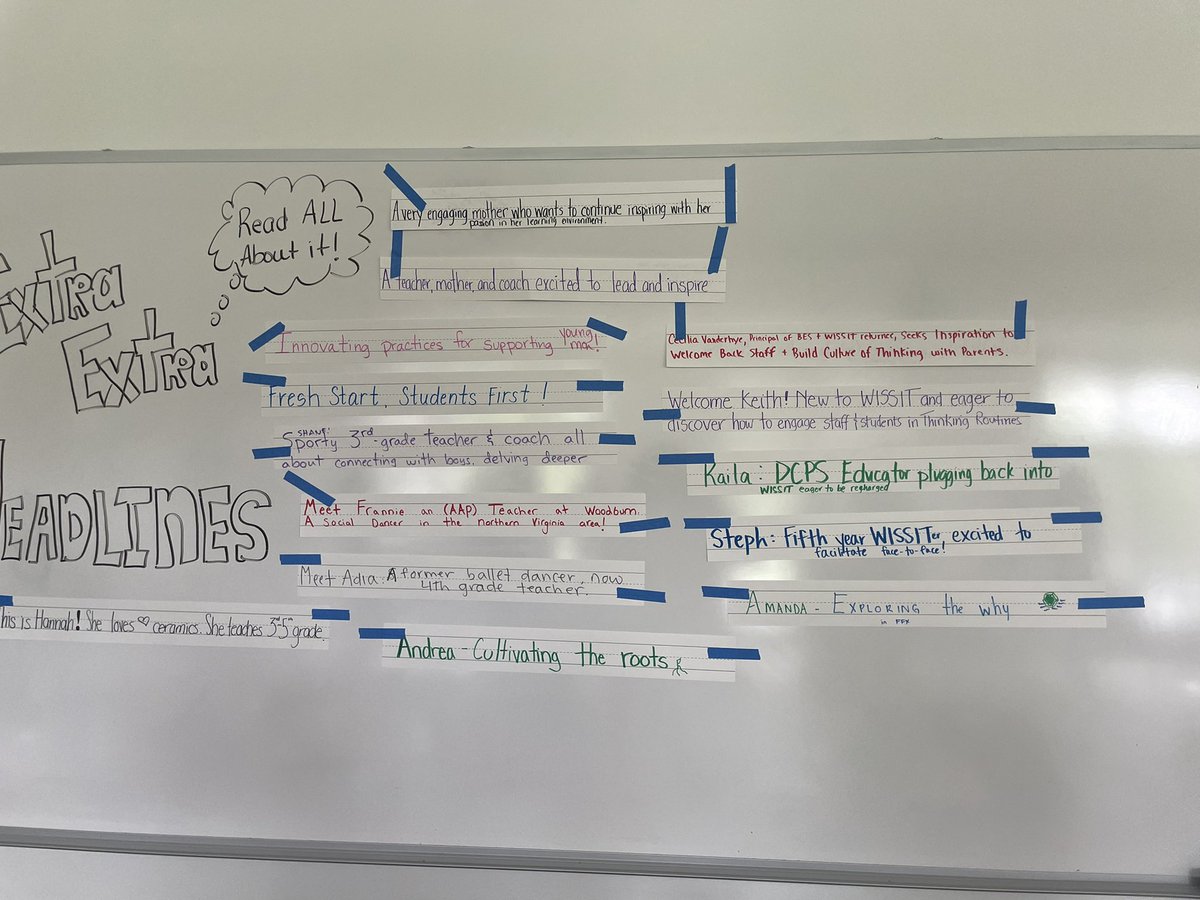 Extra
Extra
Read ALL
About it!
HEADLINES
A very engaging mother who wants to continue inspiring with her
passion in her learning environment.
A teacher, mother, and coach excited to lead and inspire
Innovating practices for supporting young
max!
Fresh Start, Students First!
SHANE:
Sporty 3rd-grade teacher & coach all
about connecting with boys, delving deeper
Meet Frannie an (AAP) Teacher at Woodburn.
A Social Dancer in the northern Virginia area!
Meet Adia: A former ballet dancer, now
4th grade teacher.
This is Hannah! She loves ♡ ceramics. She teaches 3rd-5th grade.
Andrea - Cultivating the roots
Cecilia Vanderhye, Principal of BES + WISSIT returnee, Seeks Inspiration to
Welcome Back Staff + Build Culture of Thinking with Parents.
Welcome Keith! New to WISSIT and eager to
discover how to engage staff & students in Thinking Routines
Kaila: DCPS Educator plugging back into
WISSIT eager to be recharged
Steph: Fifth year WISSITer, excited to
facilitate face-to-face!
Amanda - Exploring the why
in FFX